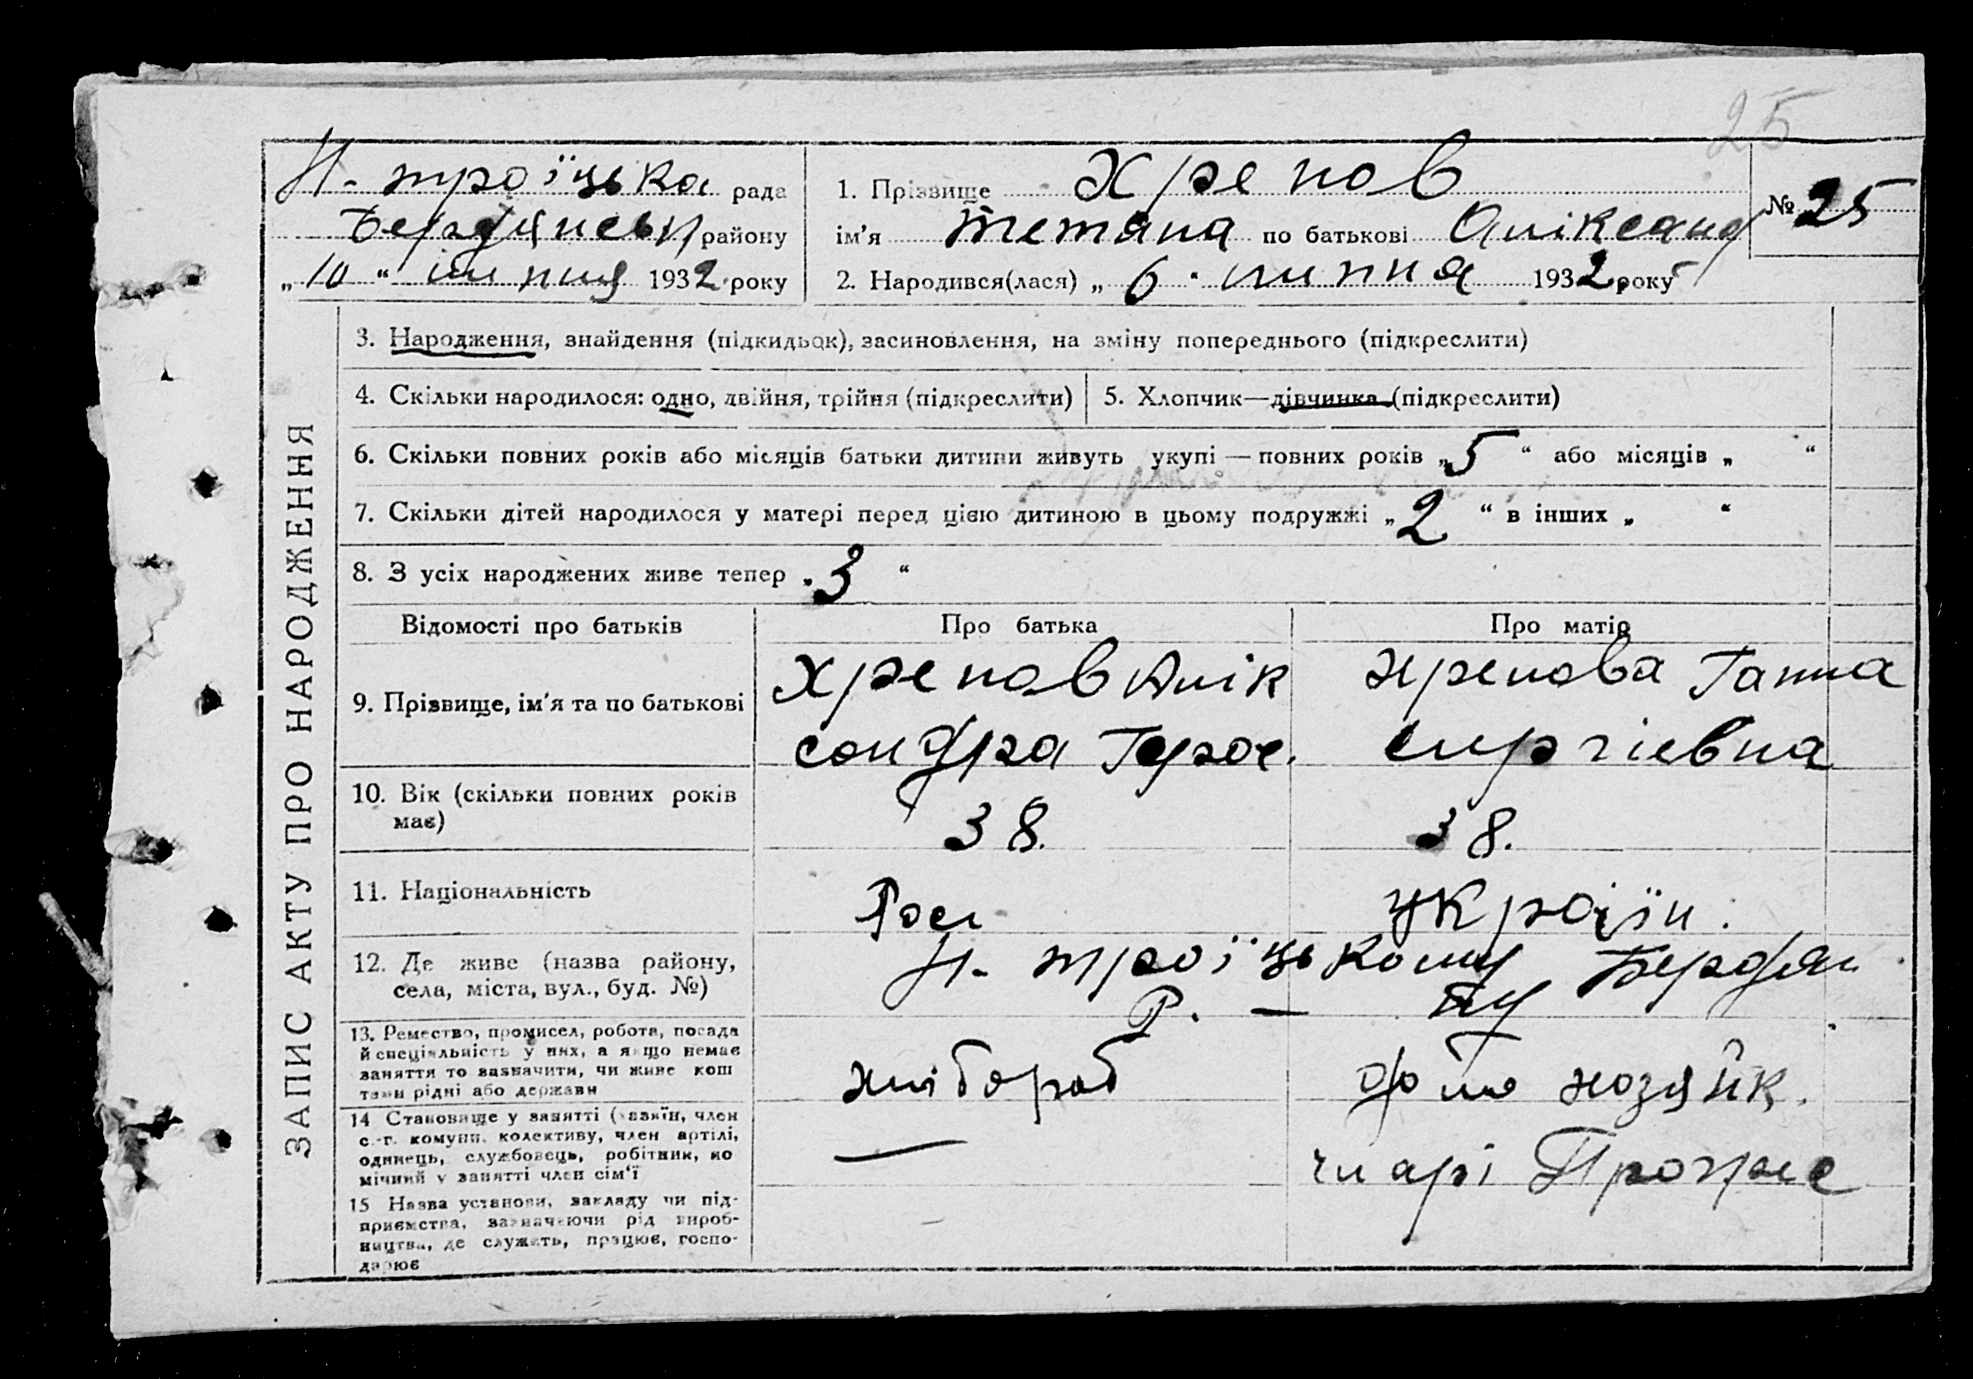 25
Н-троїцька рада
Бердянськ району
„10“ липня 1932 року
1. Прізвище Хрепов
№ 25
ім'я Тетяна по батькові Оліксанд
2. Народився(лася) „6“ липня 1932 року
ЗАПИС АКТУ ПРО НАРОДЖЕННЯ
3. Народження, знайдення (підкидьок), засиновлення, на зміну попереднього (підкреслити)
4. Скільки народилося: одно, двійня, трійня (підкреслити)
5. Хлопчик—дівчинка (підкреслити)
6. Скільки повних років або місяців батьки дитини живуть укупі — повних років „5“ або місяців „ “
7. Скільки дітей народилося у матері перед цією дитиною в цьому подружжі „2“ в інших „ “
8. З усіх народжених живе тепер „3“
Відомості про батьків Про батька Про матір
9. Прізвище, ім'я та по батькові
Хрепов Алік
сондра
Хрепова Ганна
Сиргіевна
10. Вік (скільки повних років
має)
38.
38.
11. Національність
Рос
україїн.
12. Де живе (назва району,
села, міста, вул., буд. №)
Н-троїцькому Бердян
Р. —
13. Ремество, промисел, робота, посада
й спеціяльність у них, а якщо немає
заняття то зазначити, чи живе кош
тами рідні або держави
хлібороб
дом хозяйк.
14 Становище у занятті (хазяїн, член
с.-г. комуни, колективу, член артілі,
одинець, службовець, робітник, по
мічний у занятті член сім'ї
—
чл арі
15 Назва установи, закладу чи під-
приємства, зазначаючи рід вироб-
ництва, де служить, працює, госпо-
дарює